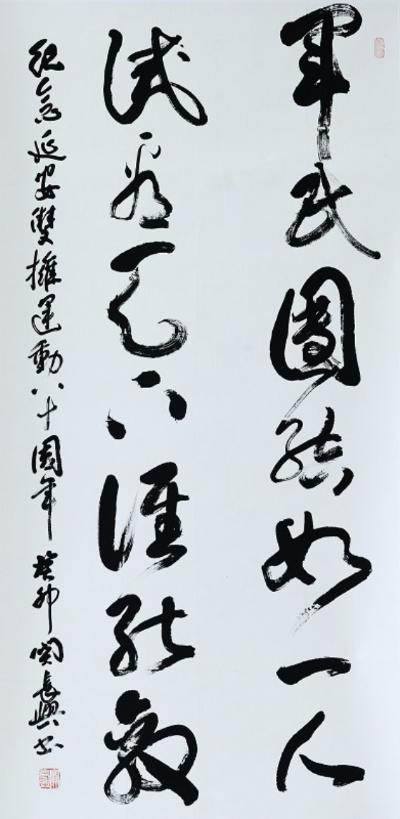 軍民團結如一人
試看天下誰能敵
紀念延安雙擁運動八十周年 癸卯 関長興书